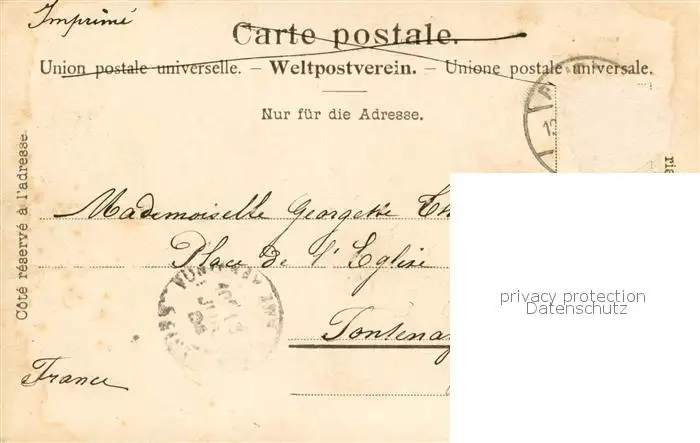 Imprimé
Carte postale.
Union postale universelle. – Weltpostverein. – Unione postale universale.
Nur für die Adresse.
Côté réservé à l'adresse.
Mademoiselle Georgette
Place de l'Eglise
Fontenay
France
privacy protection
Datenschutz